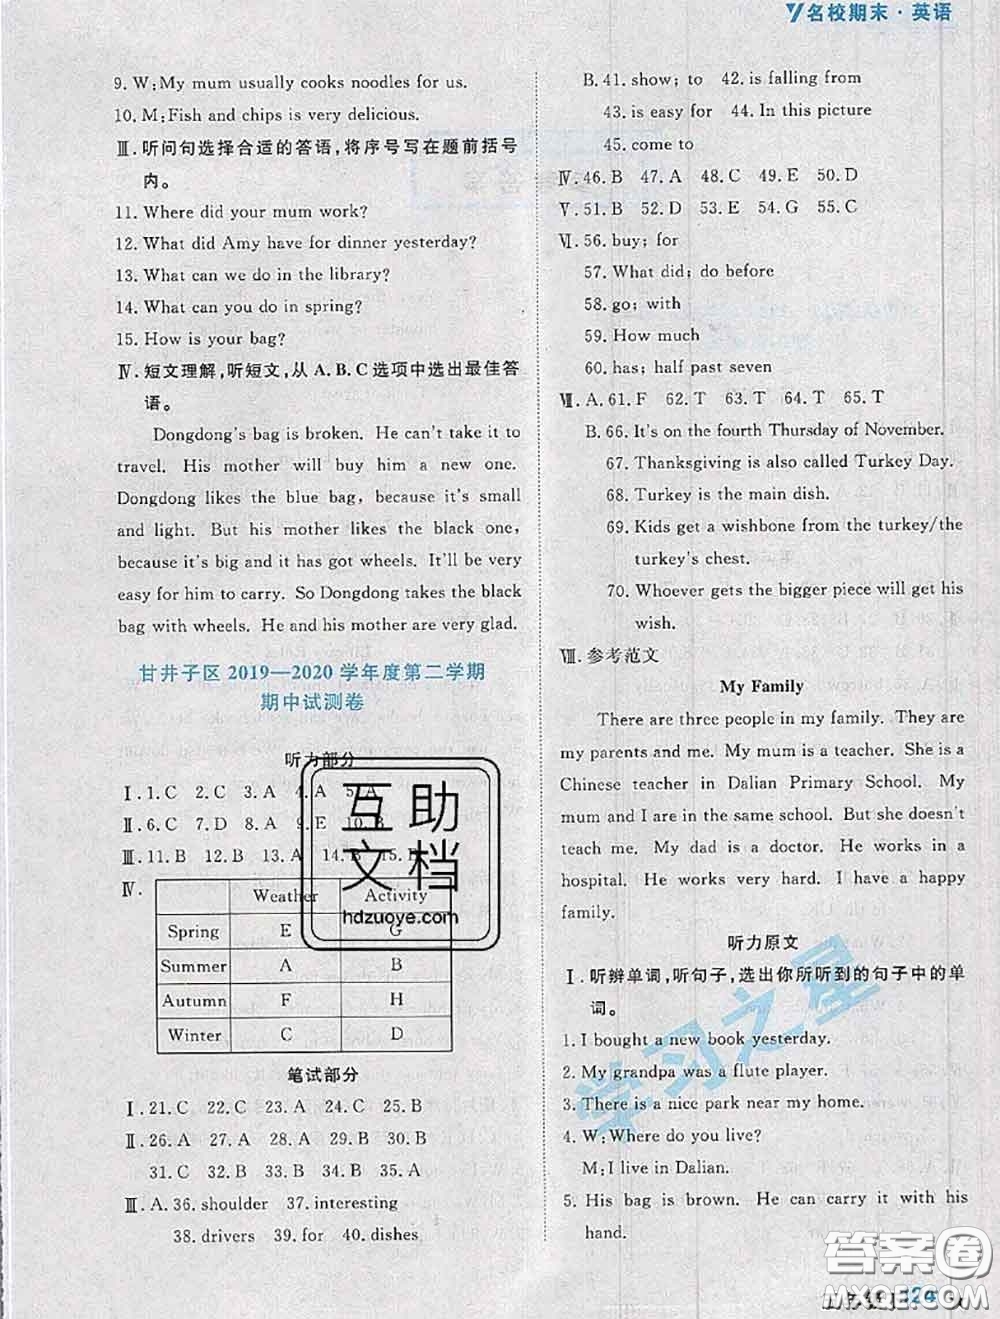 名校期末·英语
9. W:My mum usually cooks noodles for us.
10. M:Fish and chips is very delicious.
Ⅲ. 听问句选择合适的答语,将序号写在题前括号
内。
11. Where did your mum work?
12. What did Amy have for dinner yesterday?
13. What can we do in the library?
14. What can you do in spring?
15. How is your bag?
Ⅳ. 短文理解,听短文,从 A. B. C 选项中选出最佳答
语。
Dongdong's bag is broken. He can't take it to
travel. His mother will buy him a new one.
Dongdong likes the blue bag, because it's small
and light. But his mother likes the black one,
because it's big and it has got wheels. It'll be very
easy for him to carry. So Dongdong takes the black
bag with wheels. He and his mother are very glad.
甘井子区 2019—2020 学年度第二学期
期中试测卷
听力部分
Ⅰ. 1. C 2. C 3. A 4. A 5. A
Ⅱ. 6. C 7. D 8. A 9. E 10. B
Ⅲ. 11. B 12. B 13. A 14. B 15. B
Ⅳ.
Weather Activity
Spring E G
Summer A B
Autumn F H
Winter C D
笔试部分
Ⅰ. 21. C 22. C 23. A 24. C 25. B
Ⅱ. 26. A 27. A 28. A 29. B 30. B
31. C 32. B 33. B 34. B 35. A
Ⅲ. A. 36. shoulder 37. interesting
38. drivers 39. for 40. dishes
B. 41. show; to 42. is falling from
43. is easy for 44. In this picture
45. come to
Ⅳ. 46. B 47. A 48. C 49. E 50. D
Ⅴ. 51. B 52. D 53. E 54. G 55. C
Ⅵ. 56. buy; for
57. What did; do before
58. go; with
59. How much
60. has; half past seven
Ⅶ. A. 61. F 62. T 63. T 64. T 65. T
B. 66. It's on the fourth Thursday of November.
67. Thanksgiving is also called Turkey Day.
68. Turkey is the main dish.
69. Kids get a wishbone from the turkey/the
turkey's chest.
70. Whoever gets the bigger piece will get his
wish.
Ⅷ. 参考范文
My Family
There are three people in my family. They are
my parents and me. My mum is a teacher. She is a
Chinese teacher in Dalian Primary School. My
mum and I are in the same school. But she doesn't
teach me. My dad is a doctor. He works in a
hospital. He works very hard. I have a happy
family.
听力原文
Ⅰ. 听辨单词,听句子,选出你所听到的句子中的单
词。
1. I bought a new book yesterday.
2. My grandpa was a flute player.
3. There is a nice park near my home.
4. W:Where do you live?
M:I live in Dalian.
5. His bag is brown. He can carry it with his
hand.
互助
文档
hdzuoye.com
学习之星
答案圈